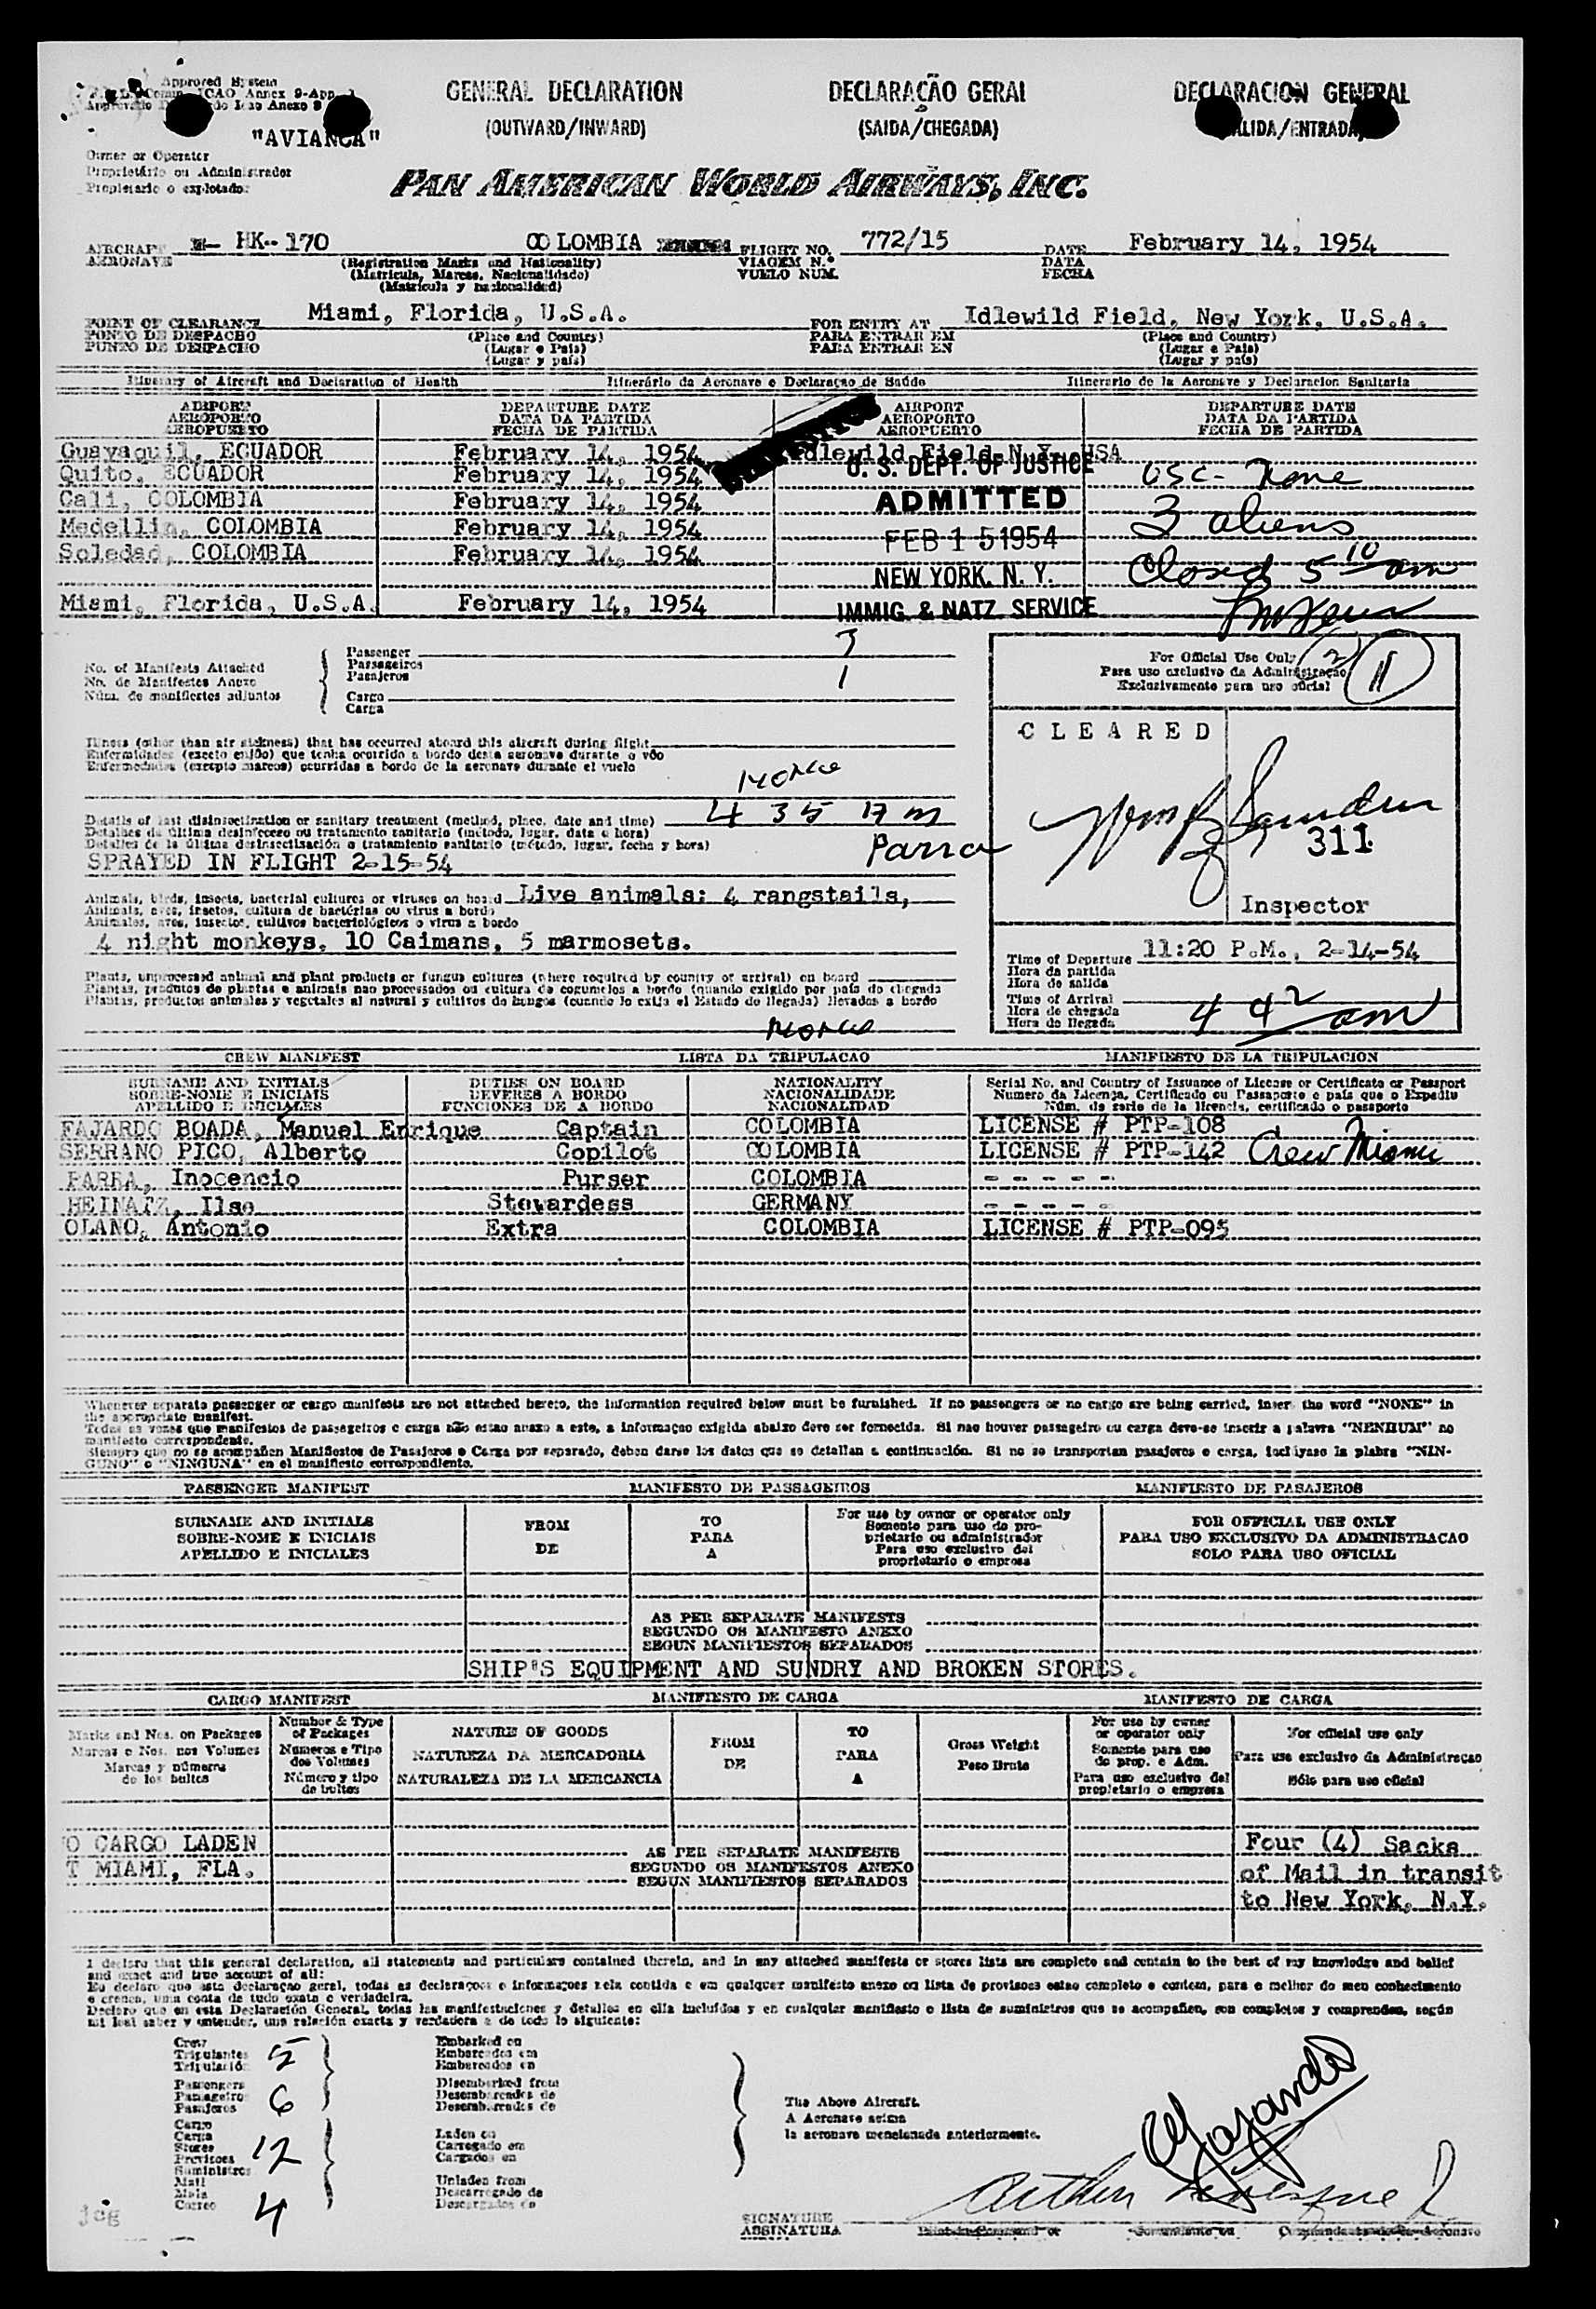 Approved System
ICAO Annex 9-App.
"AVIANCA"
GENERAL DECLARATION
(OUTWARD/INWARD)
DECLARAÇÃO GERAL
(SAIDA/CHEGADA)
DECLARACION GENERAL
Owner or Operator
Proprietário ou Administrador
Propietario o explotador
PAN AMERICAN WORLD AIRWAYS, INC.
AIRCRAFT HK-170 COLOMBIA FLIGHT NO. 772/15 DATE February 14, 1954
AERONAVE (Registration Marks and Nationality) VIAGEM N.º DATA
(Matricula, Marcas, Nacionalidade) VUELO NUM. FECHA
(Matricula y nacionalidad)
POINT OF CLEARANCE Miami, Florida, U.S.A. FOR ENTRY AT Idlewild Field, New York, U.S.A.
PONTO DE DESPACHO (Place and Country) PARA ENTRAR EM (Place and Country)
PUNTO DE DESPACHO (Lugar e Pais) PARA ENTRAR EN (Lugar e Pais)
(Lugar y país) (Lugar y país)
Itinerary of Aircraft and Declaration of Health Itinerário da Aeronave e Declaraçao de Saúde Itinerario de la Aeronave y Declaracion Sanitaria
AIRPORT DEPARTURE DATE AIRPORT DEPARTURE DATE
AEROPORTO DATA DA PARTIDA AEROPORTO DATA DA PARTIDA
AEROPUERTO FECHA DE PARTIDA AEROPUERTO FECHA DE PARTIDA
Guayaquil, ECUADOR February 14, 1954 Idlewild Field N.Y. USA
Quito, ECUADOR February 14, 1954 U. S. DEPT. OF JUSTICE USC- None
Cali, COLOMBIA February 14, 1954 ADMITTED 3 aliens
Medellin, COLOMBIA February 14, 1954 FEB 15 1954
Soledad, COLOMBIA February 14, 1954 NEW YORK, N. Y. Closed 5 10 am
Miami, Florida, U.S.A. February 14, 1954 IMMIG. & NATZ. SERVICE
No. of Manifests Attached
No. de Manifestos Anexo
Núm. de manifiestos adjuntos
Passenger 3
Passageiros
Pasajeros
Cargo 1
Carga
For Official Use Only (2) 11
Para uso exclusivo da Administração
Exclusivamente para uso oficial
CLEARED
311
Inspector
Illness (other than air sickness) that has occurred aboard this aircraft during flight
Enfermidades (exceto enjôo) que tenha ocorrido a bordo desta aeronave durante o vôo
Enfermedades (excepto mareos) ocurridas a bordo de la aeronave durante el vuelo
None
Details of last disinsectization or sanitary treatment (method, place, date and time) 4 35 A m
Detalhes da última desinfeccao ou tratamento sanitario (método, lugar, data e hora)
Detalles de la última desinsectisación o tratamiento sanitario (método, lugar, fecha y hora) Parra
SPRAYED IN FLIGHT 2-15-54
Animals, birds, insects, bacterial cultures or viruses on board Live animals: 4 rangstails,
Animais, aves, insetos, cultura de bactérias ou virus a bordo
Animales, aves, insectos, cultivos bacteriológicos o virus a bordo
4 night monkeys, 10 Caimans, 5 marmosets.
Plants, unprocessed animal and plant products or fungus cultures (where required by country of arrival) on board
Plantas, produtos de plantas e animais nao processados ou cultura de cogumelos a bordo (quando exigido por pais de chegada
Plantas, productos animales y vegetales al natural y cultivos de hongos (cuando lo exija el Estado de llegada) llevados a bordo
None
Time of Departure 11:20 P.M., 2-14-54
Hora da partida
Hora de salida
Time of Arrival 4 42 am
Hora de chegada
Hora de llegada
CREW MANIFEST LISTA DA TRIPULACAO MANIFIESTO DE LA TRIPULACION
SURNAME AND INITIALS DUTIES ON BOARD NATIONALITY Serial No. and Country of Issuance of License or Certificate or Passport
SOBRE-NOME E INICIAIS DEVERES A BORDO NACIONALIDADE Numero da Licença, Certificado ou Passaporte e pais que o Expediu
APELLIDO E INICIALES FUNCIONES DE A BORDO NACIONALIDAD Núm. de serie de la licencia, certificado o pasaporte
FAJARDO BOADA, Manuel Enrique Captain COLOMBIA LICENSE # PTP-108
SERRANO PICO, Alberto Copilot COLOMBIA LICENSE # PTP-142 Crew Miami
PARRA, Inocencio Purser COLOMBIA - - - - -
HEINATZ, Ilse Stewardess GERMANY - - - - -
OLANO, Antonio Extra COLOMBIA LICENSE # PTP-095
Whenever separate passenger or cargo manifests are not attached hereto, the information required below must be furnished. If no passengers or no cargo are being carried, insert the word "NONE" in
the appropriate manifest.
Todas as vezes que manifestos de passageiros e carga não estao anexo a este, a informaçao exigida abaixo deve ser fornecida. Si nao houver passageiro ou carga deve-se inscrir a palavra "NENHUM" no
manifesto correspondente.
Siempro que no se acompañen Manifiestos de Pasajeros o Carga por separado, deben darse los datos que se detallan a continuación. Si no se transportan pasajeros o carga, incluyase la plabra "NIN-
GUNO" o "NINGUNA" en el manifiesto correspondiente.
PASSENGER MANIFEST MANIFESTO DE PASSAGEIROS MANIFIESTO DE PASAJEROS
SURNAME AND INITIALS FROM TO For use by owner or operator only FOR OFFICIAL USE ONLY
SOBRE-NOME E INICIAIS DE PARA Somente para uso do pro- PARA USO EXCLUSIVO DA ADMINISTRACAO
APELLIDO E INICIALES A prietario ou administrador SOLO PARA USO OFICIAL
Para uso exclusivo del
propietario o empresa
AS PER SEPARATE MANIFESTS
SEGUNDO OS MANIFESTO ANEXO
SEGUN MANIFIESTOS SEPARADOS
SHIP'S EQUIPMENT AND SUNDRY AND BROKEN STORES.
CARGO MANIFEST MANIFIESTO DE CARGA MANIFESTO DE CARGA
Marks and Nos. on Packages Number & Type of Packages NATURE OF GOODS FROM TO Gross Weight For use by owner or operator only For official use only
Marcas e Nos. nos Volumes Numeros e Tipo dos Volumes NATUREZA DA MERCADORIA DE PARA Peso Bruto Somente para uso do prop. e Adm. Para use exclusivo da Administraçao
Marcas y números de los bultos Número y tipo de bultos NATURALEZA DE LA MERCANCIA A Para uso exclusivo del propietario o empresa Sólo para uso oficial
O CARGO LADEN AS PER SEPARATE MANIFESTS Four (4) Sacks
T MIAMI, FLA. SEGUNDO OS MANIFESTOS ANEXO of Mail in transit
SEGUN MANIFIESTOS SEPARADOS to New York, N.Y.
I declare that this general declaration, all statements and particulars contained therein, and in any attached manifests or stores lists are complete and contain to the best of my knowledge and belief
and exact and true account of all:
Eu declaro que esta declaraçao geral, todas as declaraçoes e informaçoes nela contida e em qualquer manifesto anexo ou lista de provisoes estao completo e contem, para o melhor do meu conhecimento
e crenca, uma conta de tudo exata e verdadeira.
Declaro que en esta Declaración General, todas las manifestaciones y detalles en ella incluídos y en cualquier manifiesto o lista de suministros que se acompañen, son completos y comprenden, según
mi leal saber y entender, una relación exacta y verdadera de todo lo siguiente:
Crew 5 Embarked on
Tripulantes Embarcados em
Tripulación Embarcados en
Passengers 6 Disembarked from
Passageiros Desembarcados de
Pasajeros Desembarcados de
The Above Aircraft.
A Aeronave acima
la aeronave mencionada anteriormente.
Cargo
Carga
Stores 12 Laden on
Provisoes Carregado em
Suministros Cargados en
Mail Unladen from
Mala Descarregado de
Correo 4 Descargados de
jcg
SIGNATURE
ASSINATURA